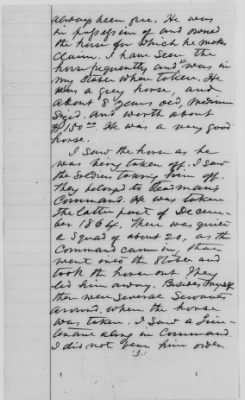 always been free. He was
in possession of and owned
the horse for which he makes
claim. I have seen the
horse frequently and was in
my stable when taken. He
was a grey horse, and
about 8 years old, medium
sized, and worth about
$150.00 He was a very good
horse.
I saw the horse as he
was being taken off. I saw
the soldiers taking him off.
They belonged to
Command. He was taken
the latter part of Decem-
ber 1864. There was quite
a squad of about 20, as the
Command came in, that
went into the stable and
took the horse out They
led him away. Besides myself
there were several servants
around when the horse
was taken. I saw a Lieu-
tenant along in Command.
I did not hear him order
3.